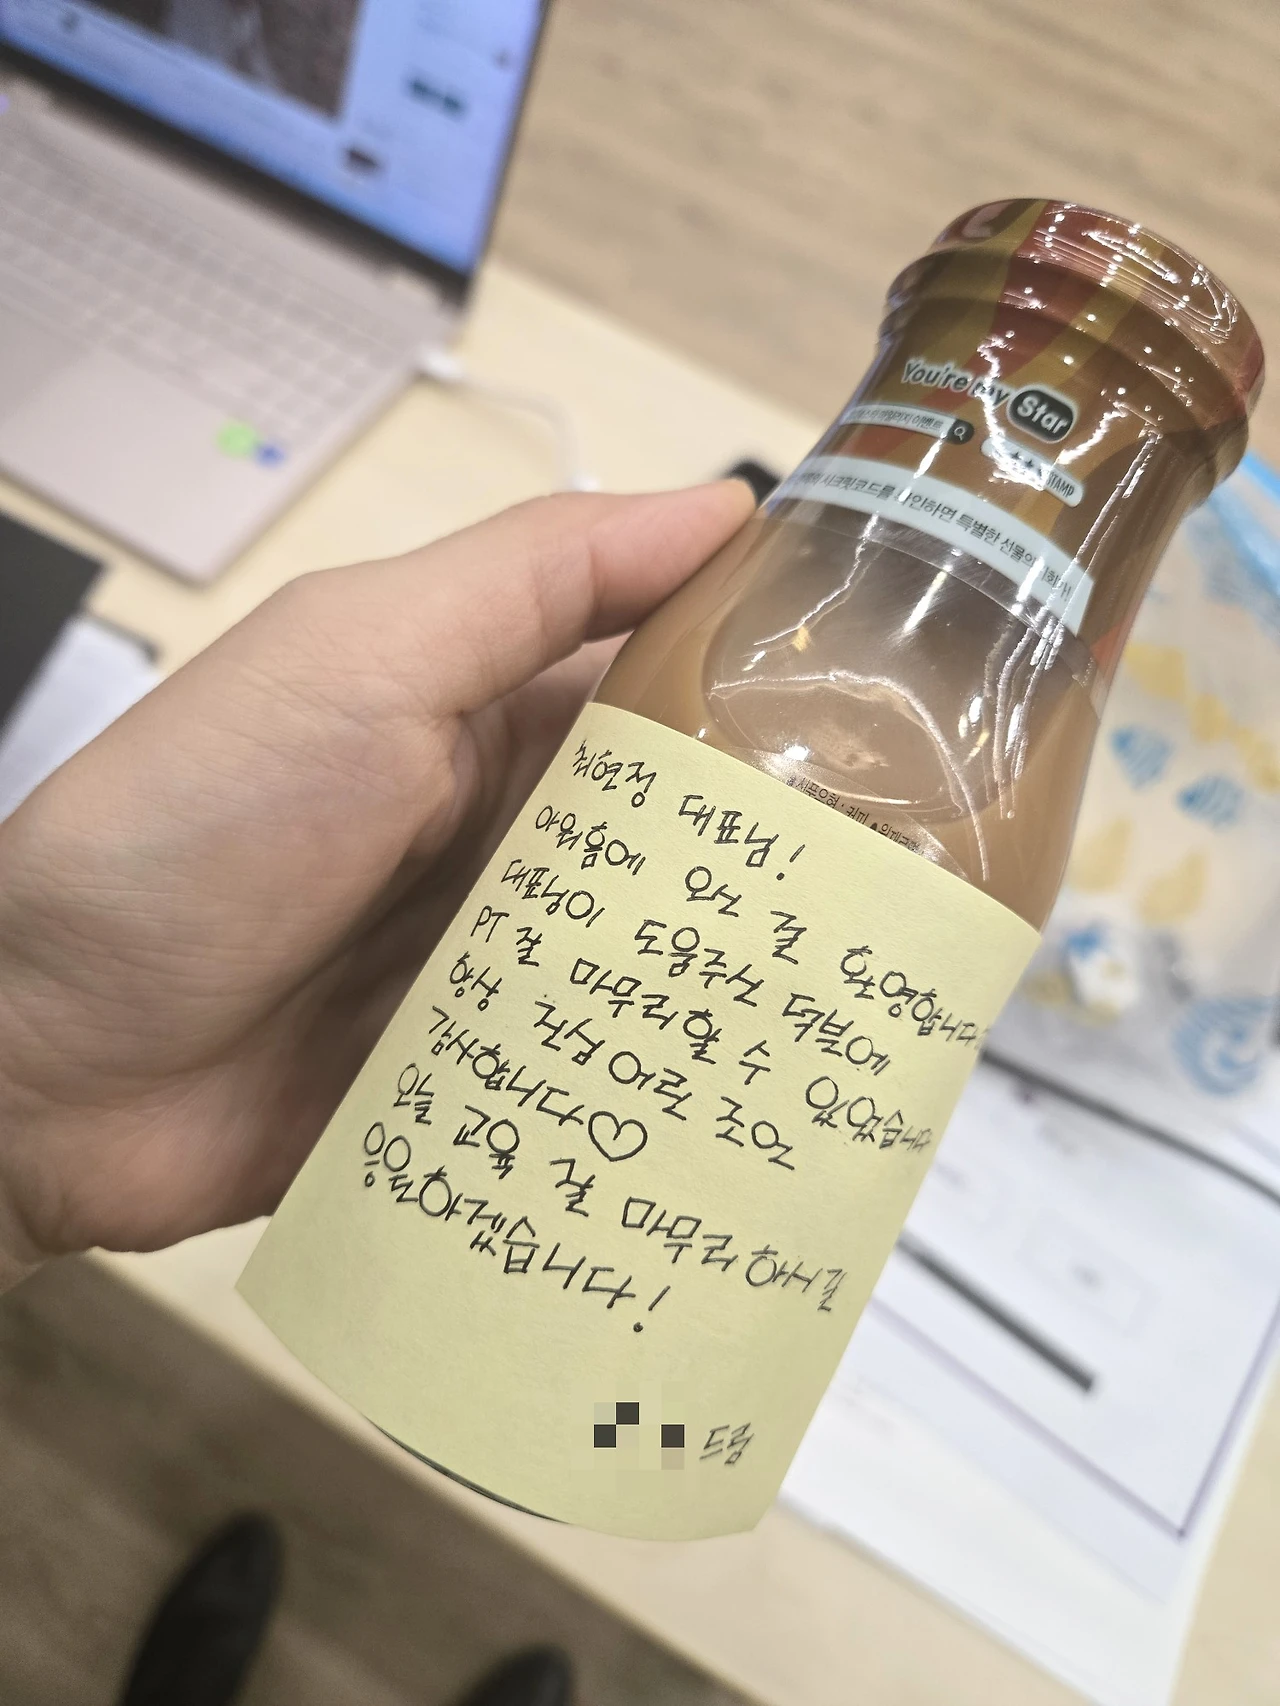 You're my Star
STAMP
시크릿코드를 확인하면 특별한 선물의 기회가!
최연정 대표님!
아워홈에 오신 걸 환영합니다
대표님이 도움주신 덕분에
PT 잘 마무리할 수 있었습니다
항상 진심 어린 조언
감사합니다♡
오늘 교육 잘 마무리하시길
응원하겠습니다!
드림